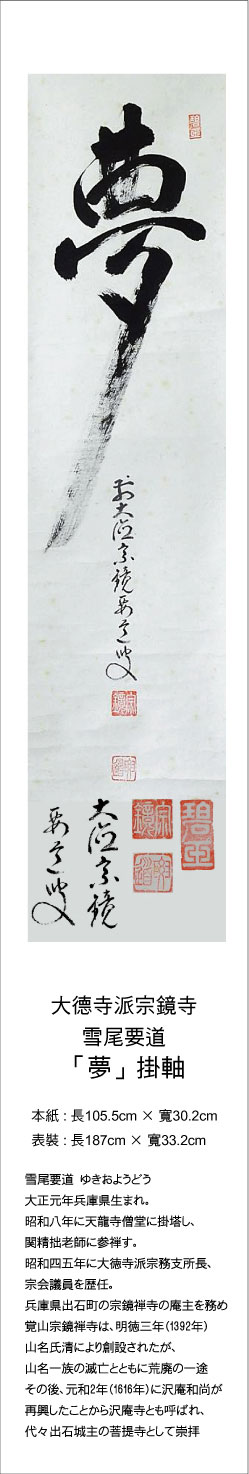 夢
前大徳宗鏡要道叟
宗鏡
大徳宗鏡
要道叟
宗鏡
大德寺派宗鏡寺
雪尾要道
「夢」掛軸
本紙：長105.5cm × 寬30.2cm
表裝：長187cm × 寬33.2cm
雪尾要道 ゆきおようどう
大正元年兵庫県生まれ。
昭和八年に天龍寺僧堂に掛塔し、
関精拙老師に参禅す。
昭和四五年に大徳寺派宗務支所長、
宗会議員を歴任。
兵庫県出石町の宗鏡禅寺の庵主を務め
覚山宗鏡禅寺は、明徳三年（1392年）
山名氏清により創設されたが、
山名一族の滅亡とともに荒廃の一途
その後、元和2年（1616年）に沢庵和尚が
再興したことから沢庵寺とも呼ばれ、
代々出石城主の菩提寺として崇拝